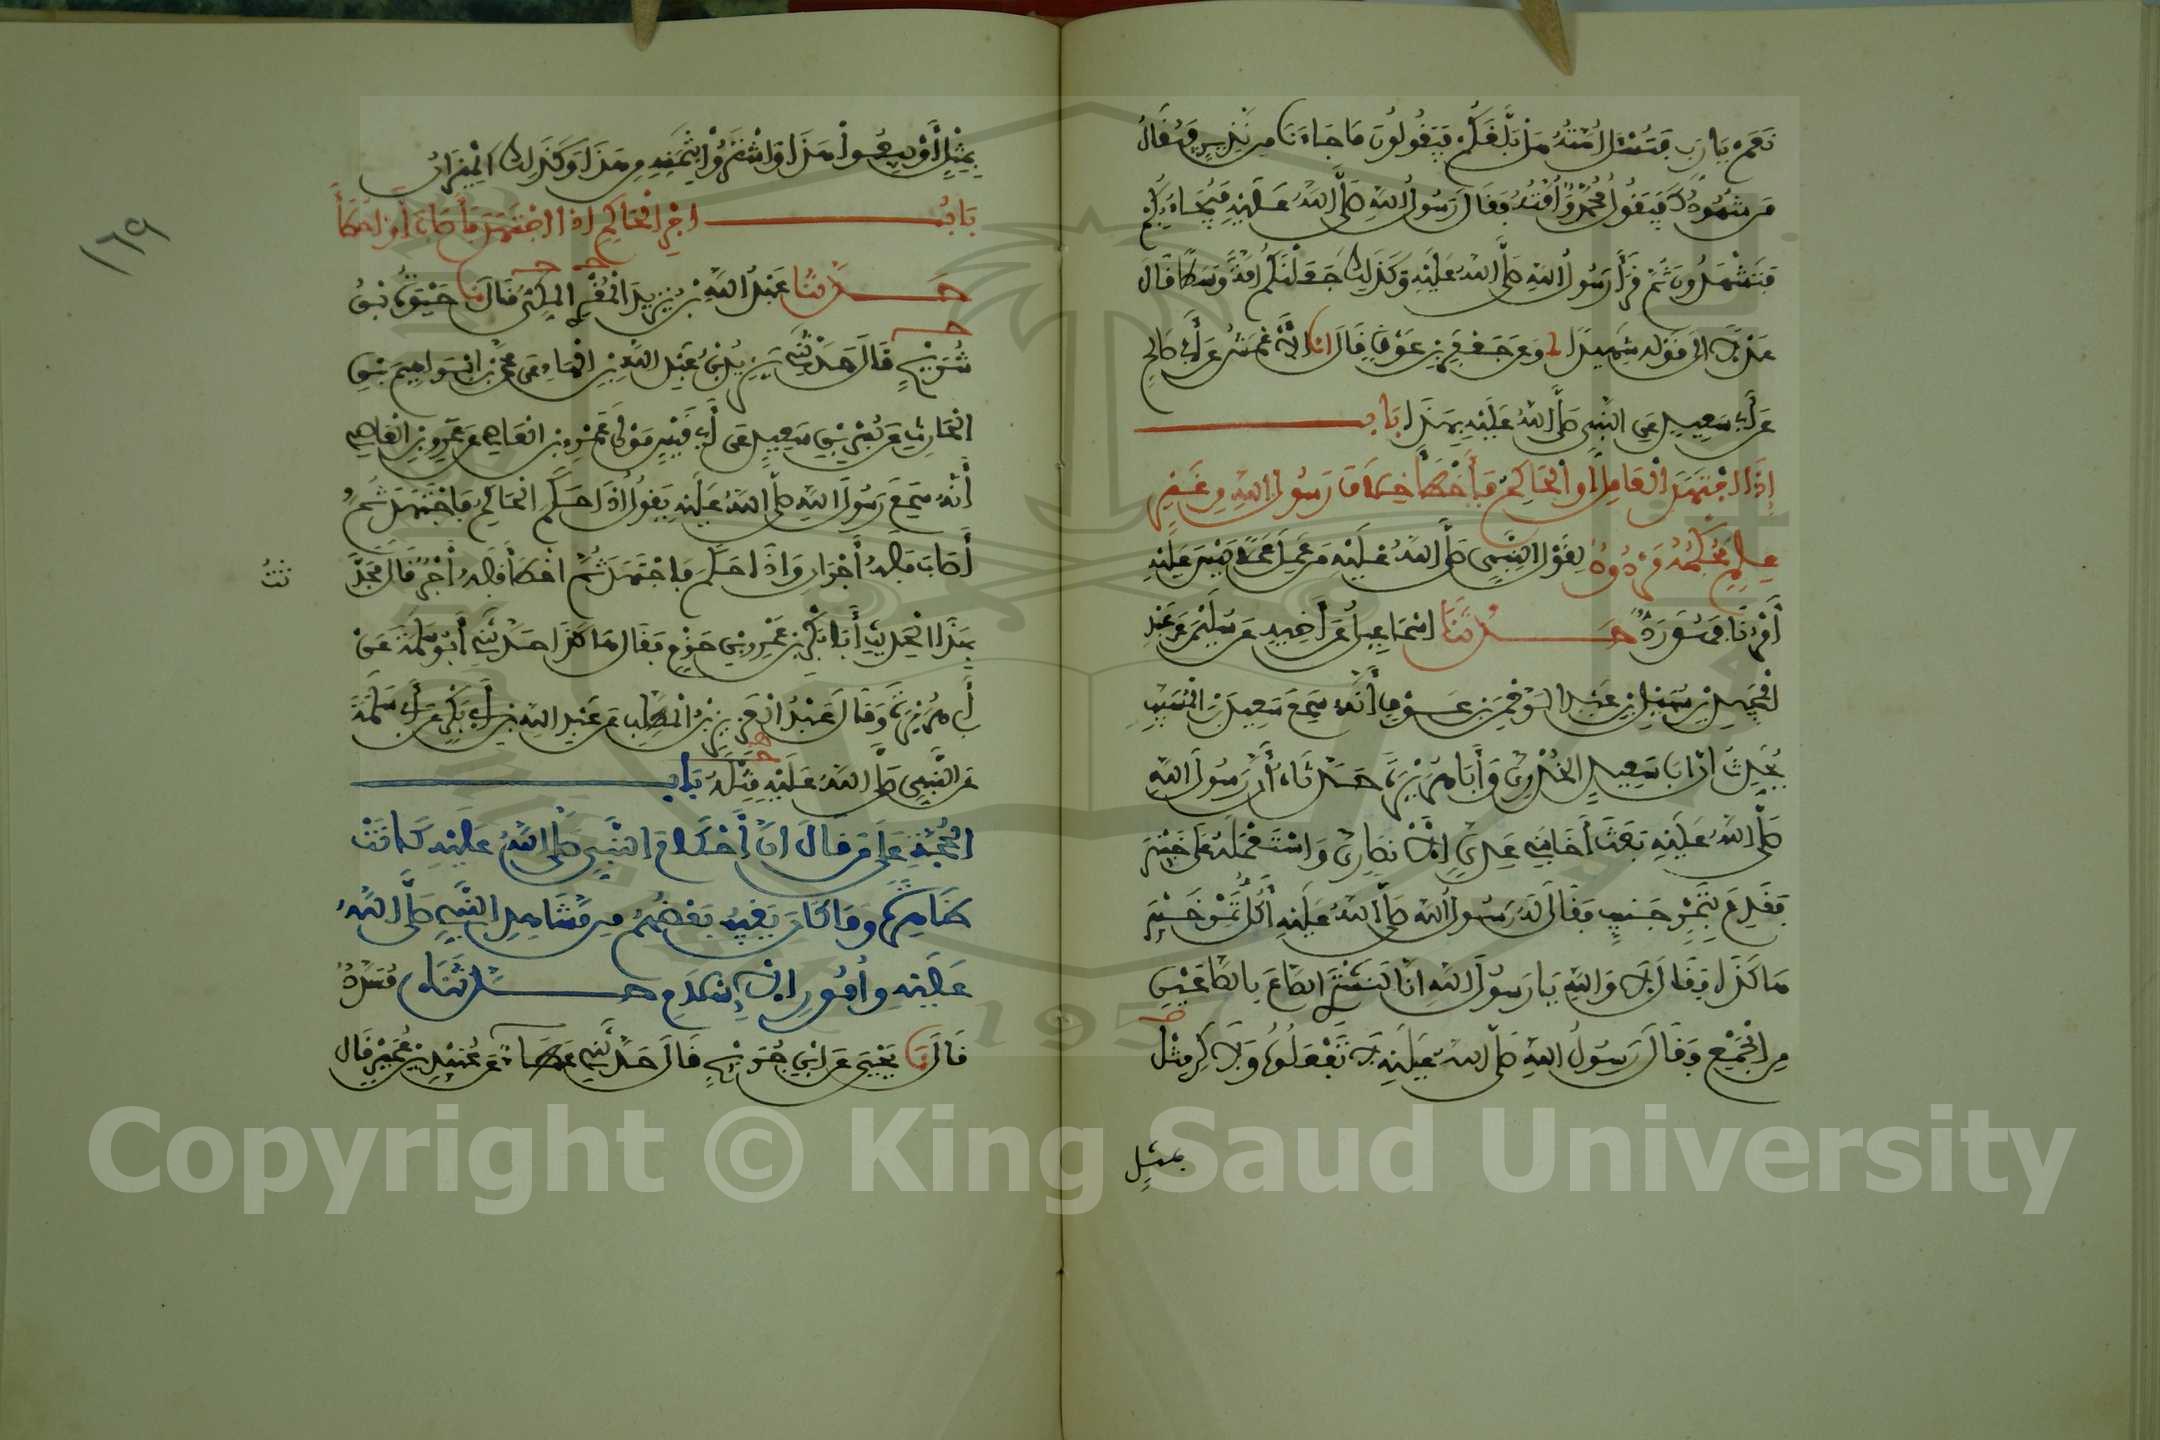 نَعَمْ يَا رَبِّ فَتُسْئَلُ أُمَّتُهُ هَلْ بَلَّغَكُمْ فَيَقُولُونَ مَا جَاءَنَا مِن نَّذِيرٍ فَيُقَالُ
مَن شُهُودُكَ فَيَقُولُ مُحَمَّدٌ وَأُمَّتُهُ فَقَالَ رَسُولُ اللهِ صَلَّى اللهُ عَلَيْهِ فَيُجَاءُ بِكُمْ
فَتَشْهَدُونَ ثُمَّ قَرَأَ رَسُولُ اللهِ صَلَّى اللهُ عَلَيْهِ وَكَذَلِكَ جَعَلْنَاكُمْ أُمَّةً وَسَطًا قَالَ
عَدْلًا إلى قوله شَهِيدًا وَعَن جَعْفَرِ بْنِ عَوْنٍ قَالَ انا الأَعْمَشُ عَن أَبِي صَالِحٍ
عَن أَبِي سَعِيدٍ عَنِ النَّبِيِّ صَلَّى اللهُ عَلَيْهِ بِهَذَا بَابُ
إِذَا اجْتَهَدَ الْعَامِلُ أَوِ الْحَاكِمُ فَأَخْطَأَ خِلَافَ رَسُولِ اللهِ مِن غَيْرِ
عِلْمٍ فَحُكْمُهُ مَرْدُودٌ لِقَوْلِ النَّبِيِّ صَلَّى اللهُ عَلَيْهِ مَن عَمِلَ عَمَلًا لَيْسَ عَلَيْهِ
أَمْرُنَا فَهُوَ رَدٌّ حَدَّثَنَا إِسْمَاعِيلُ عَن أَخِيهِ عَن سُلَيْمَنَ عَن عَبْدِ
الْمَجِيدِ بْنِ سُهَيْلِ بْنِ عَبْدِ الرَّحْمَنِ بْنِ عَوْفٍ أَنَّهُ سَمِعَ سَعِيدَ بْنَ الْمُسَيِّبِ
يُحَدِّثُ أَنَّ أَبَا سَعِيدٍ الْخُدْرِيَّ وَأَبَا هُرَيْرَةَ حَدَّثَاهُ أَنَّ رَسُولَ اللهِ
صَلَّى اللهُ عَلَيْهِ بَعَثَ أَخَا بَنِي عَدِيٍّ الْأَنْصَارِيَّ وَاسْتَعْمَلَهُ عَلَى خَيْبَرَ
فَقَدِمَ بِتَمْرٍ جَنِيبٍ فَقَالَ لَهُ رَسُولُ اللهِ صَلَّى اللهُ عَلَيْهِ أَكُلُّ تَمْرِ خَيْبَرَ
هَاكَذَا فَقَالَ لَا وَاللهِ يَا رَسُولَ اللهِ إِنَّا لَنَشْتَرِي الصَّاعَ بِالصَّاعَيْنِ
مِنَ الْجَمْعِ فَقَالَ رَسُولُ اللهِ صَلَّى اللهُ عَلَيْهِ لَا تَفْعَلُوا وَلَكِن مِثْلًا
بمثل
بِمِثْلٍ أَوْ بِيعُوا هَذَا وَاشْتَرُوا بِثَمَنِهِ مِن هَذَا وَكَذَلِكَ الْمِيزَانُ
بَابُ أَجْرِ الْحَاكِمِ إِذَا اجْتَهَدَ فَأَصَابَ أَوْ أَخْطَأَ
١٦٩
حَدَّثَنَا عَبْدُ اللهِ بْنُ يَزِيدَ الْمُقْرِئُ الْمَكِّيُّ قَالَ نَا حَيْوَةُ بْنُ
شُرَيْحٍ قَالَ حَدَّثَنِي يَزِيدُ بْنُ عَبْدِ اللهِ بْنِ الْهَادِ عَن مُحَمَّدِ بْنِ إِبْرَاهِيمَ بْنِ
الْحَارِثِ عَن بُسْرِ بْنِ سَعِيدٍ عَن أَبِي قَيْسٍ مَوْلَى عَمْرِو بْنِ الْعَاصِ عَن عَمْرِو بْنِ الْعَاصِ
أَنَّهُ سَمِعَ رَسُولَ اللهِ صَلَّى اللهُ عَلَيْهِ يَقُولُ إِذَا حَكَمَ الْحَاكِمُ فَاجْتَهَدَ ثُمَّ
أَصَابَ فَلَهُ أَجْرَانِ وَإِذَا حَكَمَ فَاجْتَهَدَ ثُمَّ أَخْطَأَ فَلَهُ أَجْرٌ قَالَ فَحَدَّ
ثْتُ
بِهَذَا الْحَدِيثِ أَبَا بَكْرِ بْنَ عَمْرِو بْنِ حَزْمٍ فَقَالَ هَاكَذَا حَدَّثَنِي أَبُو سَلَمَةَ عَنْ
أَبِي هُرَيْرَةَ وَقَالَ عَبْدُ الْعَزِيزِ بْنُ الْمُطَّلِبِ عَن عَبْدِ اللهِ بْنِ أَبِي بَكْرٍ عَن أَبِي سَلَمَةَ
عَنِ النَّبِيِّ صَلَّى اللهُ عَلَيْهِ مِثْلَهُ بَابُ
الْحُجَّةِ عَلَى مَن قَالَ إِنَّ أَحْكَامَ النَّبِيِّ صَلَّى اللهُ عَلَيْهِ كَانَتْ
ظَاهِرَةً وَمَا كَانَ يَغِيبُ بَعْضُهُمْ مِن مَشَاهِدِ النَّبِيِّ صَلَّى اللهُ
عَلَيْهِ وَأُمُورِ الْإِسْلَامِ حَدَّثَنَا مُسَدَّدٌ
قَالَ نَا يَحْيَى عَن ابْنِ جُرَيْجٍ قَالَ حَدَّثَنِي عَطَاءٌ عَن عُبَيْدِ بْنِ عُمَيْرٍ قَالَ
Copyright © King Saud University
1957